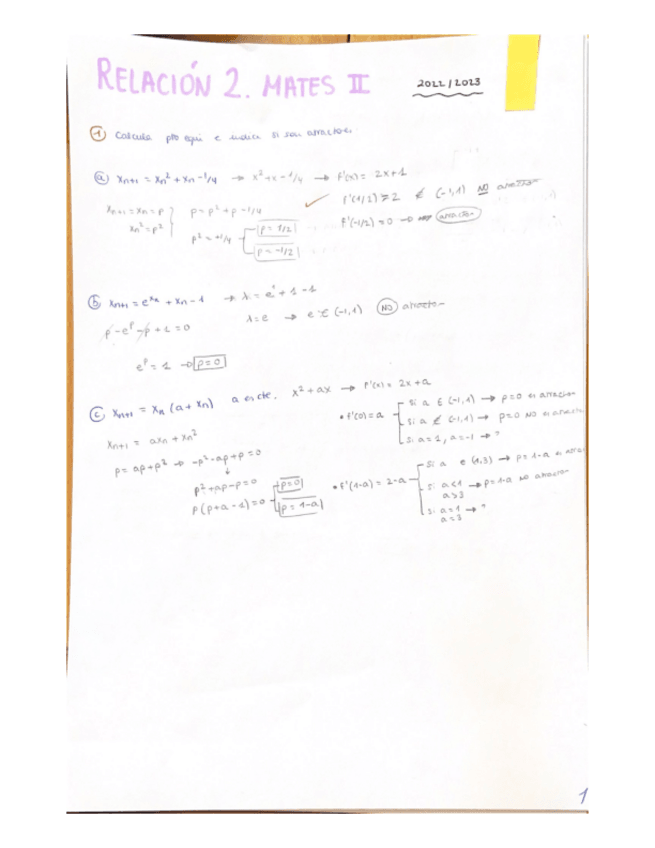 RELACIÓN 2. MATES II
2022/2023
1 Calcula pto equi e indica si son atractor.
a) Xn+1 = Xn² + Xn - 1/4 → x² + x - 1/4 → f'(x) = 2x+1
Xn+1 = Xn = p
Xn² = p²
p = p² + p - 1/4
p² = +1/4
p = 1/2
p = -1/2
f'(1/2) = 2 ∉ (-1,1) NO atractor
f'(-1/2) = 0 → atractor
b) Xn+1 = e^xn + Xn - 1
p - e^p - p + 1 = 0
λ = e → e ∉ (-1,1) NO atractor
e^p = 1 → p=0
c) Xn+1 = Xn (a + Xn) a es cte. x² + ax → f'(x) = 2x + a
Xn+1 = aXn + Xn²
p = ap + p² → -p² - ap + p = 0
p² + ap - p = 0
p (p + a - 1) = 0
p=0
p = 1-a
• f'(0) = a
Si a ∈ (-1,1) → p=0 es atractor
Si a ∉ (-1,1) → p=0 NO es atractor
Si a=1, a=-1 → ?
• f'(1-a) = 2-a
Si a ∈ (1,3) → p = 1-a es atrac
Si a<1 → p=1-a NO atractor
a>3
Si a=1 → ?
a=3
1